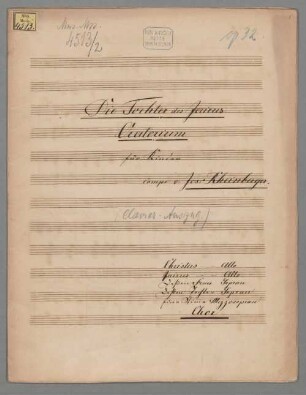 Mus. Mss.
4513/2
Die Tochter des Jairus
Oratorium
für Kinder
comp. v. Jos. Rheinberger.
(Clavier-Auszug)
Christus Alto
Jairus Alto
Sopran
Sopran
Mezzosopran
Chor